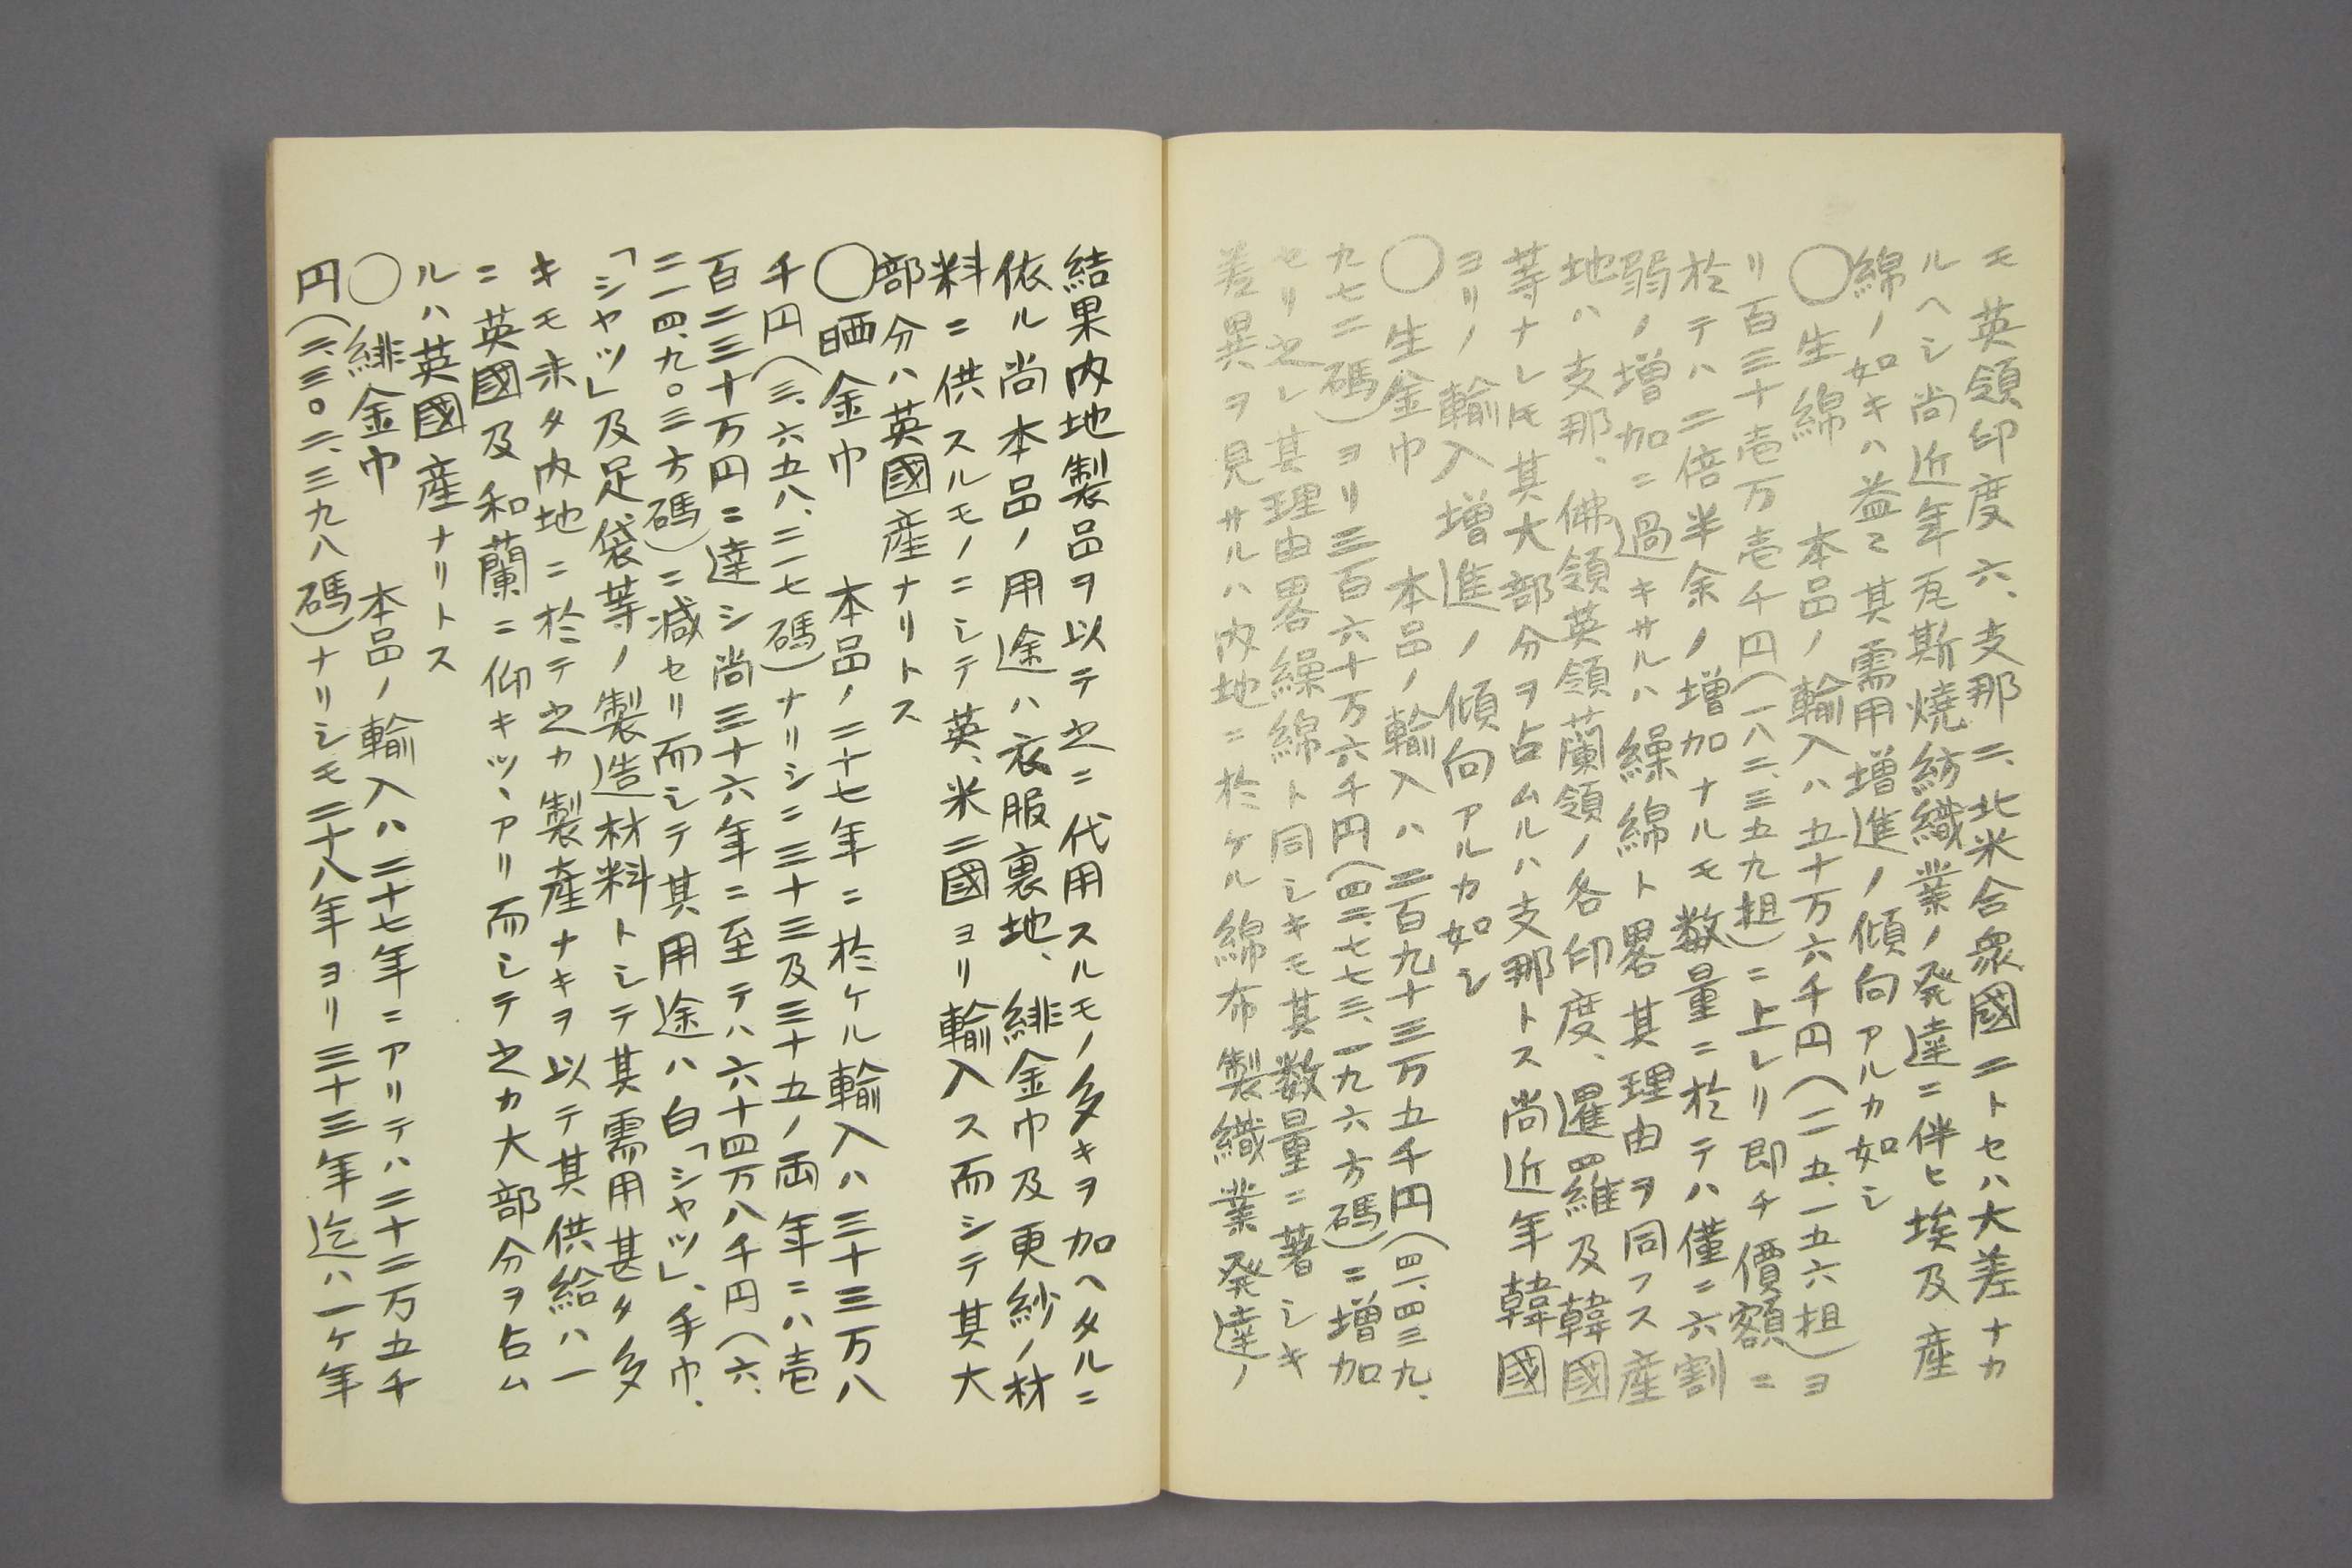 モ英領印度六、支那二、北米合衆國二トセハ大差ナカ
ルヘシ尚近年瓦斯焼紡織業ノ発達ニ伴ヒ埃及産
綿ノ如キハ益々其需用増進ノ傾向アルカ如シ
〇生綿　本品ノ輸入ハ五十万六千円（二五、一五六担）ヨ
リ百三十壱万壱千円（一八二、三五九担）ニ上レリ即チ價額ニ
於テハ二倍半余ノ増加ナルモ数量ニ於テハ僅ニ六割
弱ノ増加ニ過キサルハ繰綿ト畧其理由ヲ同フス産
地ハ支那、佛領英領蘭領ノ各印度、暹羅及韓國
等ナレ𪜈其大部分ヲ占ムルハ支那トス尚近年韓國
ヨリノ輸入増進ノ傾向アルカ如シ
〇生金巾　本品ノ輸入ハ二百九十三万五千円（四一、四三九、
九七二碼）ヨリ三百六十万六千円（四二、七七三、一九六方碼）ニ増加
セリ之レ其理由畧繰綿ト同シキモ其数量ニ著シキ
差異ヲ見サルハ内地ニ於ケル綿布製織業発達ノ
結果内地製品ヲ以テ之ニ代用スルモノ多キヲ加ヘタルニ
依ル尚本品ノ用途ハ衣服裏地、緋金巾及更紗ノ材
料ニ供スルモノニシテ英、米二國ヨリ輸入ス而シテ其大
部分ハ英國産ナリトス
〇晒金巾　本品ノ二十七年ニ於ケル輸入ハ三十三万八
千円（三、六五八、二一七碼）ナリシニ三十三及三十五ノ両年ニハ壱
百二三十万円ニ達シ尚三十六年ニ至テハ六十四万八千円（六、
二一四、九〇三方碼）ニ減セリ而シテ其用途ハ白「シヤツ」、手巾、
「シヤツ」及足袋等ノ製造材料トシテ其需用甚タ多
キモ未タ内地ニ於テ之カ製産ナキヲ以テ其供給ハ一
ニ英國及和蘭ニ仰キツヽアリ而シテ之カ大部分ヲ占ム
ルハ英國産ナリトス
〇緋金巾　本品ノ輸入ハ二十七年ニアリテハ二十二万五千
円（二、三〇二、三九八碼）ナリシモ二十八年ヨリ三十三年迄ハ一ケ年